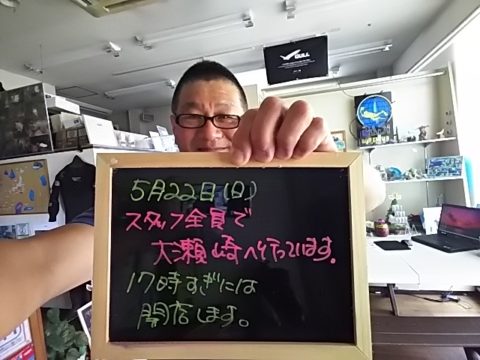 GULL
5月22日(日)
スタッフ全員で
大瀬崎へ行っています。
17時すぎには
開店します。